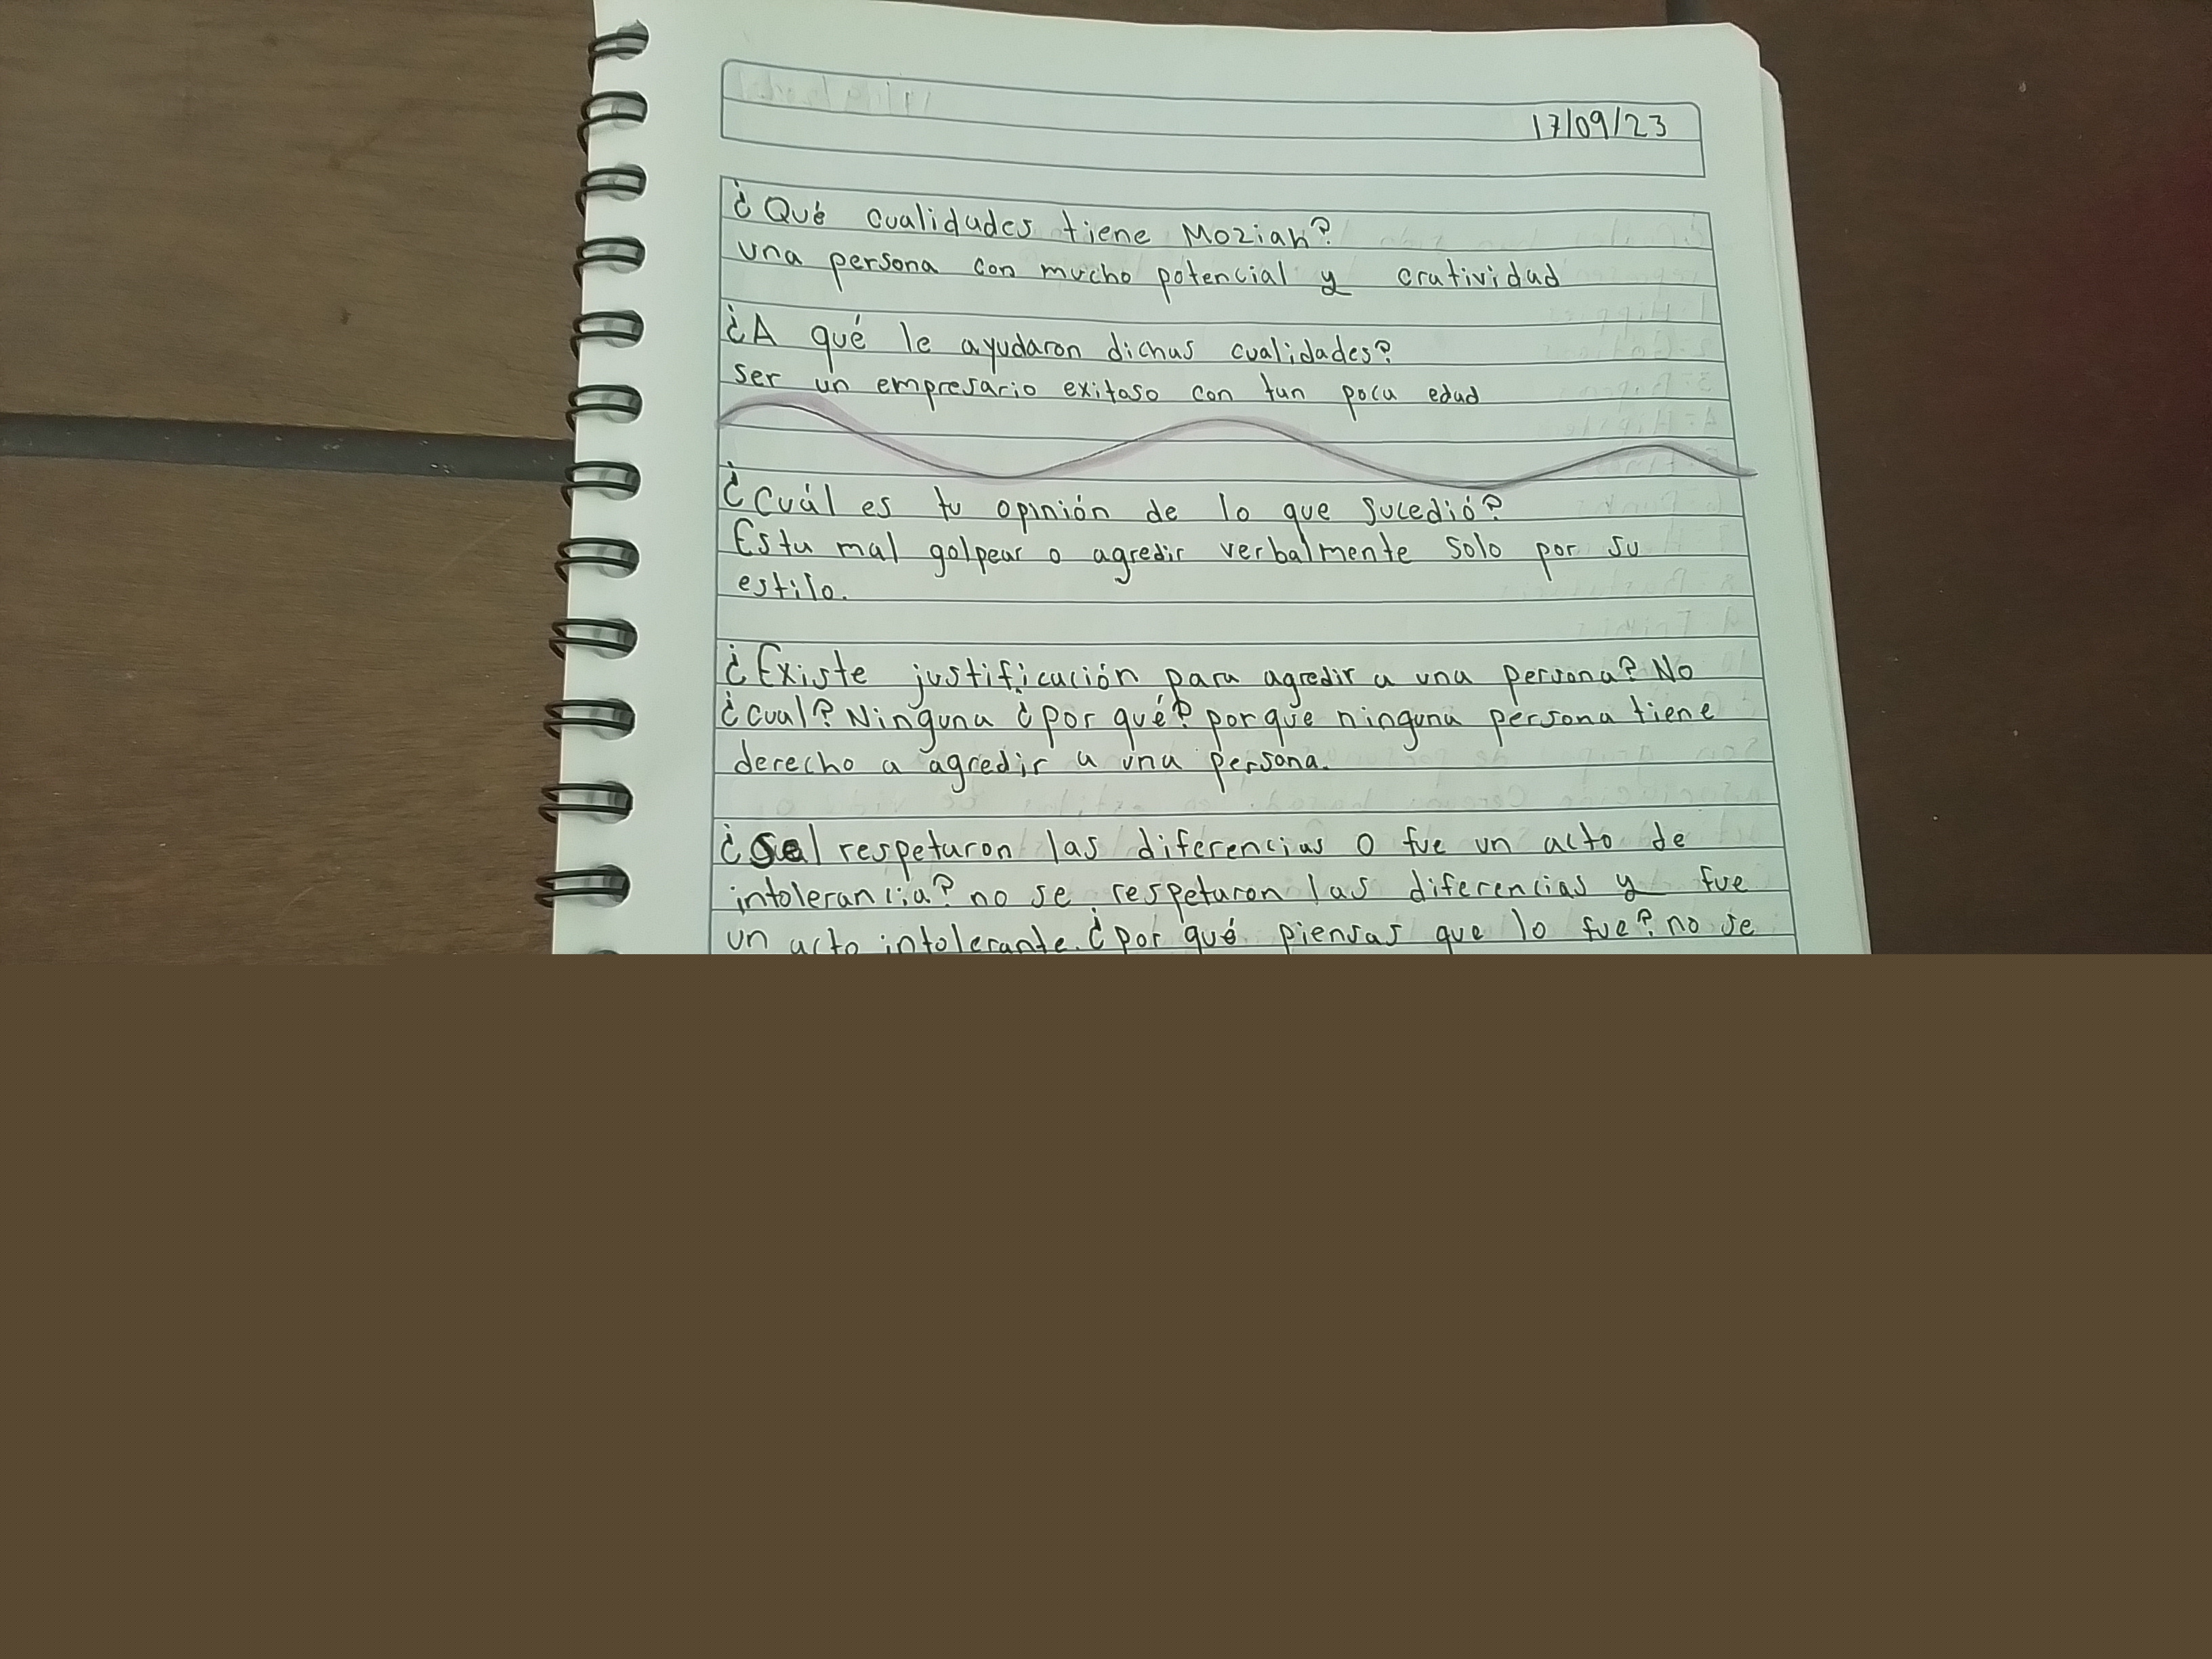 17/09/23
¿Qué cualidades tiene Moziah?
una persona con mucho potencial y cratividad
¿A qué le ayudaron dichas cualidades?
ser un empresario exitoso con tan poca edad
¿Cuál es tu opinión de lo que sucedió?
Esta mal golpear o agredir verbalmente solo por su
estilo.
¿Existe justificación para agredir a una persona? No
¿cual? Ninguna ¿por qué? porque ninguna persona tiene
derecho a agredir a una persona.
¿Se respetaron las diferencias o fue un acto de
intolerancia? no se respetaron las diferencias y fue
un acto intolerante. ¿por qué piensas que lo fue? no se